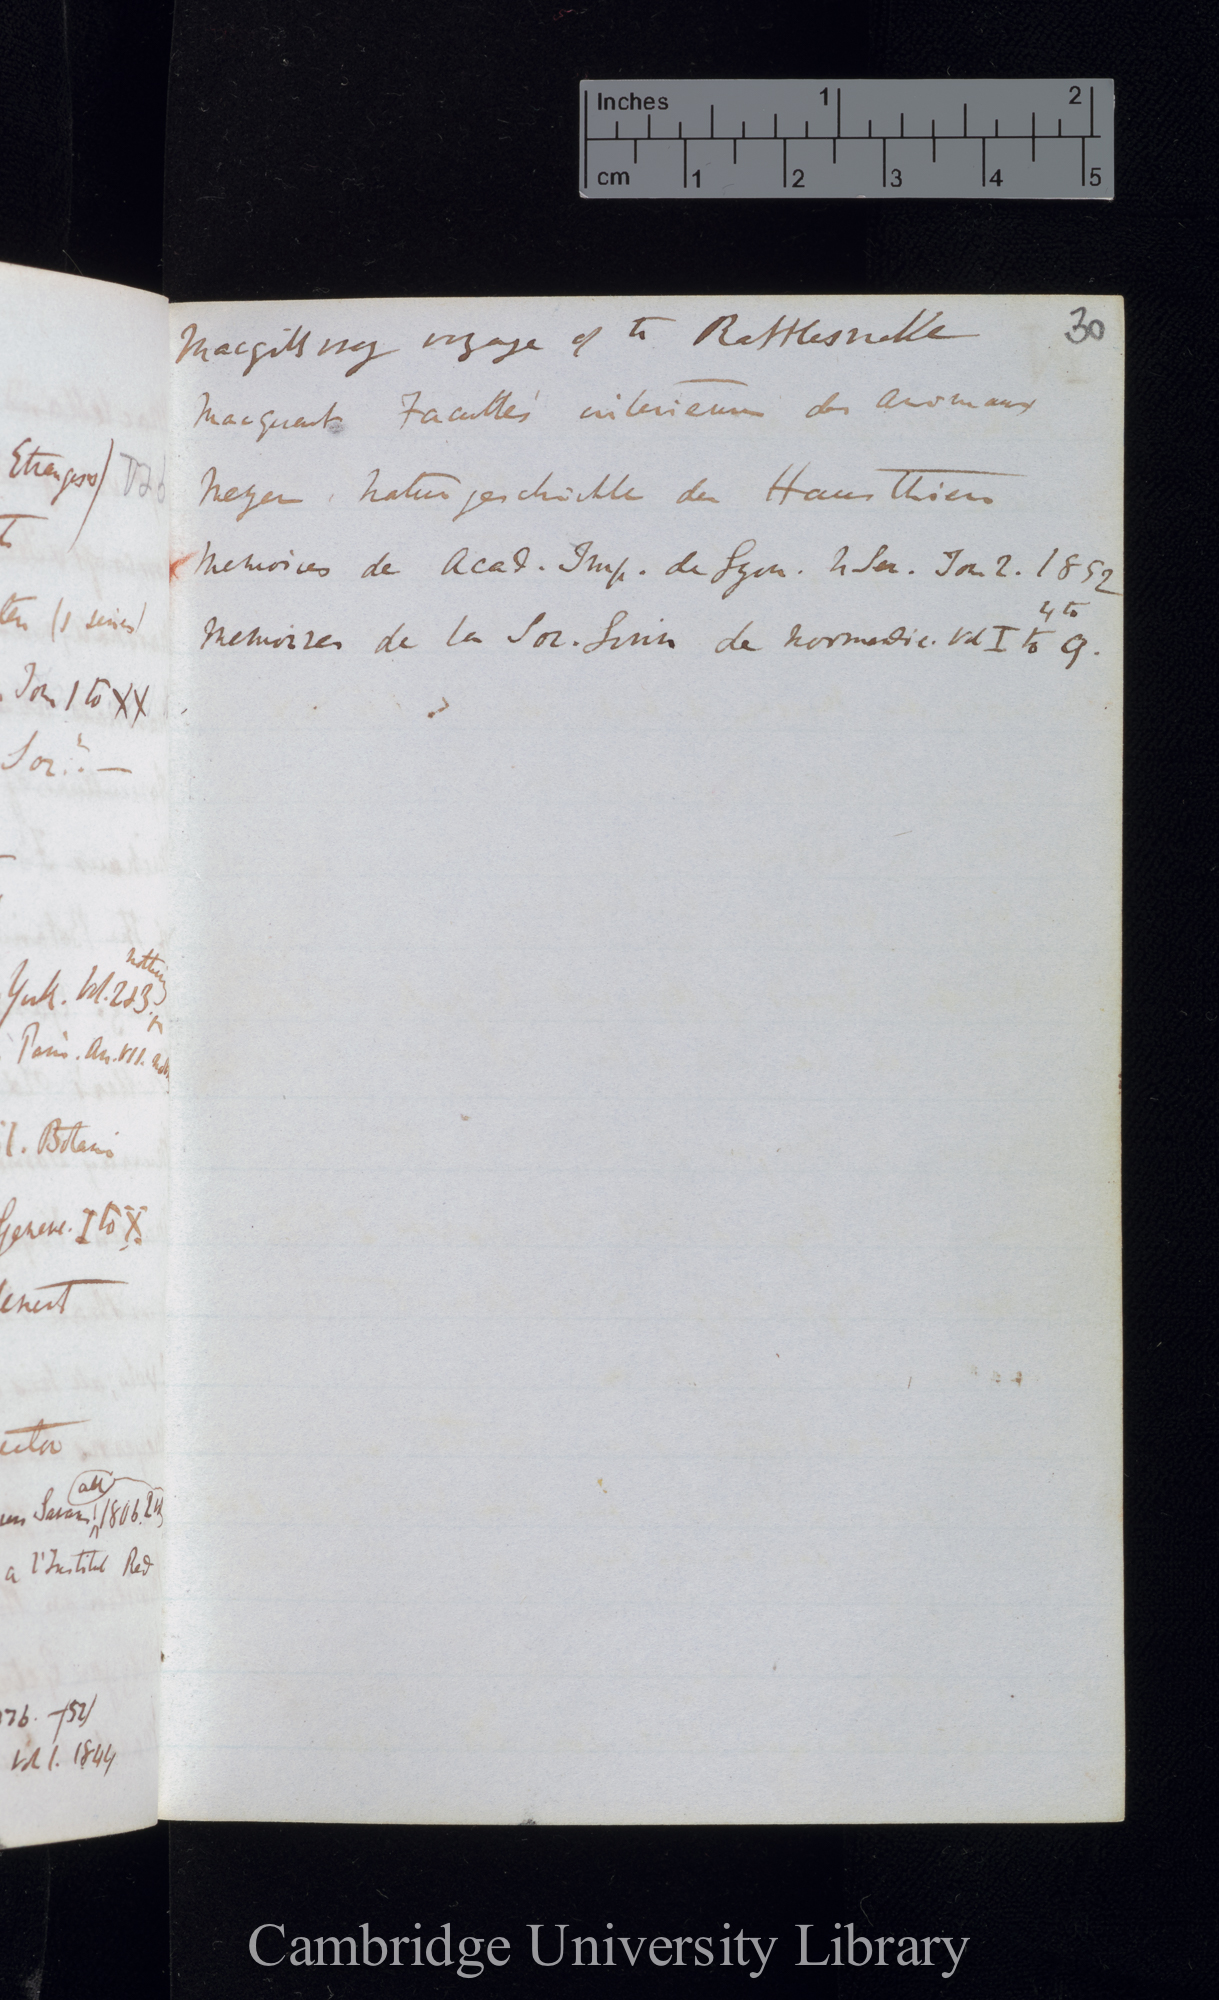 Inches 1 2
cm 1 2 3 4 5
30
Macgillivray voyage of the Rattlesnake
Macquart Facultés interieures des animaux
Meyen Naturgeschichte der Hausthiere
Memoires de Acad. Imp. de Lyon. N Ser. Tom 2. 1852
4to
Memoires de la Soc. Linn de Normandie. Vol I to 9.
Etrangers)
(1 series)
Tom 1 to XX
Soc.
nothing
York. Vol. 2 & 3.
Paris. An. VII.
Botanic
Geneve. I to X
all
Savans 1806.
a l'Institut
(52)
Vol 1. 1844
Cambridge University Library